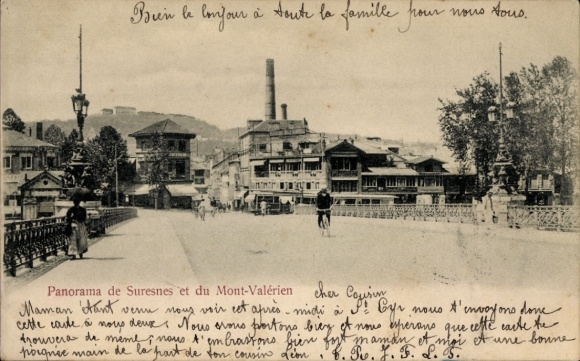 Bien le bonjour à toute la famille pour nous tous.
Panorama de Suresnes et du Mont-Valérien
cher Cousin
Maman étant venu nous voir cet après-midi à St Cyr nous t'envoyons donc
cette carte à nous deux. Nous nous portons bien et nous espérons que cette carte te
trouvera de même; nous t'embrassons bien fort maman et moi et une bonne
poignée main de la part de ton cousin Léon